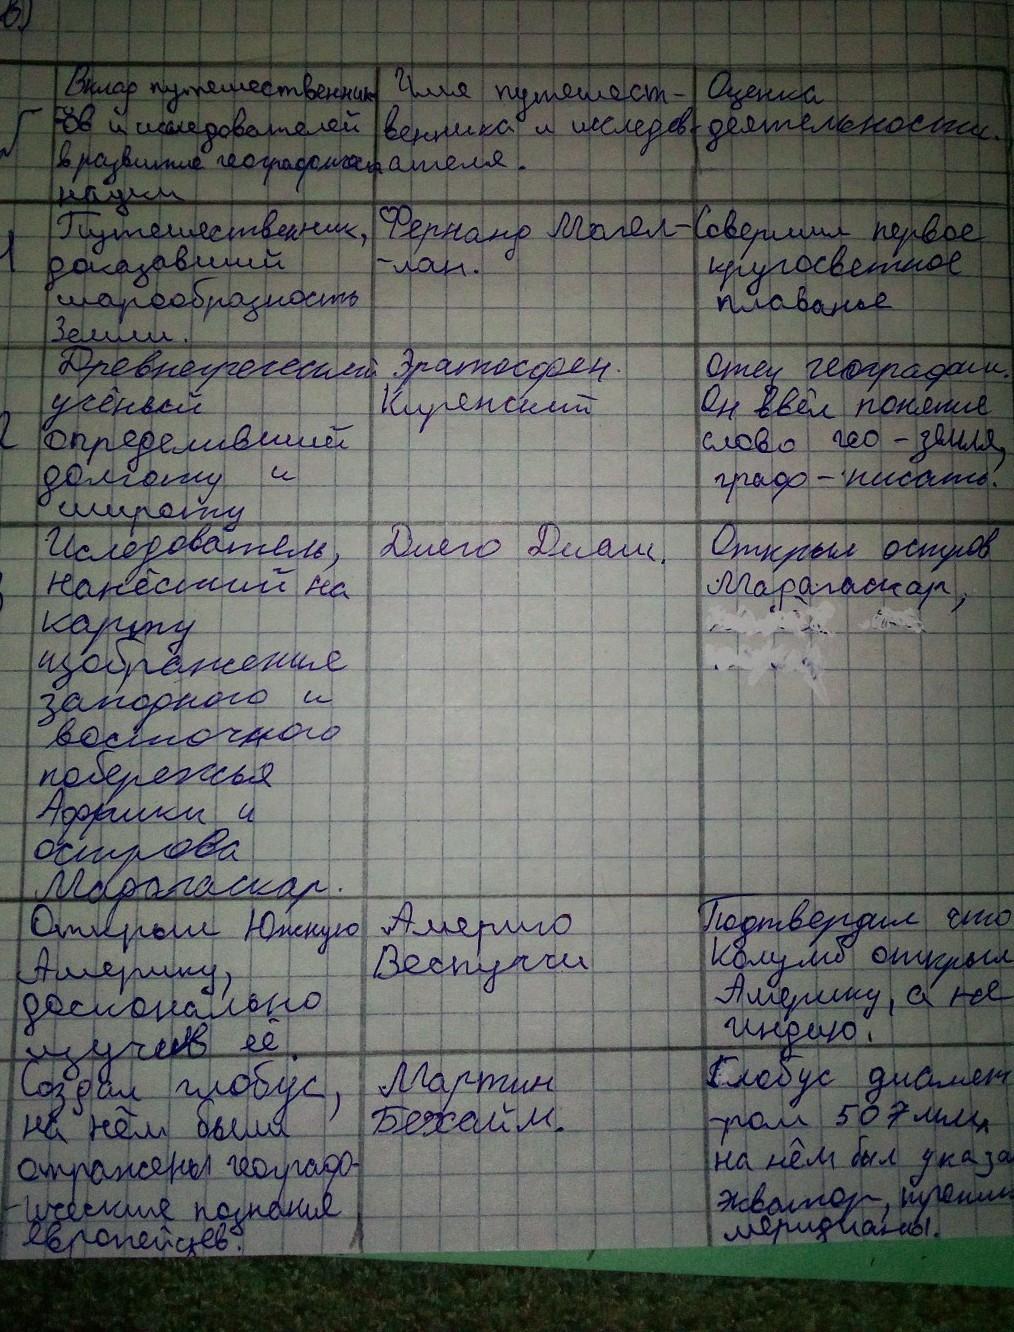 в)
Вклад путешественник
ов и исследователей
в развитие географическ
науки
Имя путешест-
венника и исследов-
ателя.
Оценка
деятельности.
1
Путешественник,
доказавший
шарообразность
Земли.
Фернанд Магел-
-лан.
Совершил первое
кругосветное
плаванье
2
Древнегреческий
учёный
определивший
долготу и
широту
Эратосфен.
Киренский
Отец географии.
Он ввёл понятие
слово гео - земля,
графо - писать.
3
Иследователь,
нанёсший на
карту
изображения
западного и
восточного
побережья
Африки и
острова
Мадагаскар.
Диего Диаш.
Открыл остров
Мадагаскар,
Открыл Южную
Америку,
досконально
изучив её.
Америго
Веспуччи
Подтвердил что
Колумб открыл
Америку, а не
Индию.
Создал глобус,
на нём были
отражены геогрофо-
-ические познания
европейцев.
Мартин
Бехайм.
Глобус диамет
-ром 507 мм,
на нём был указа
экватор, тропики
меридианы.